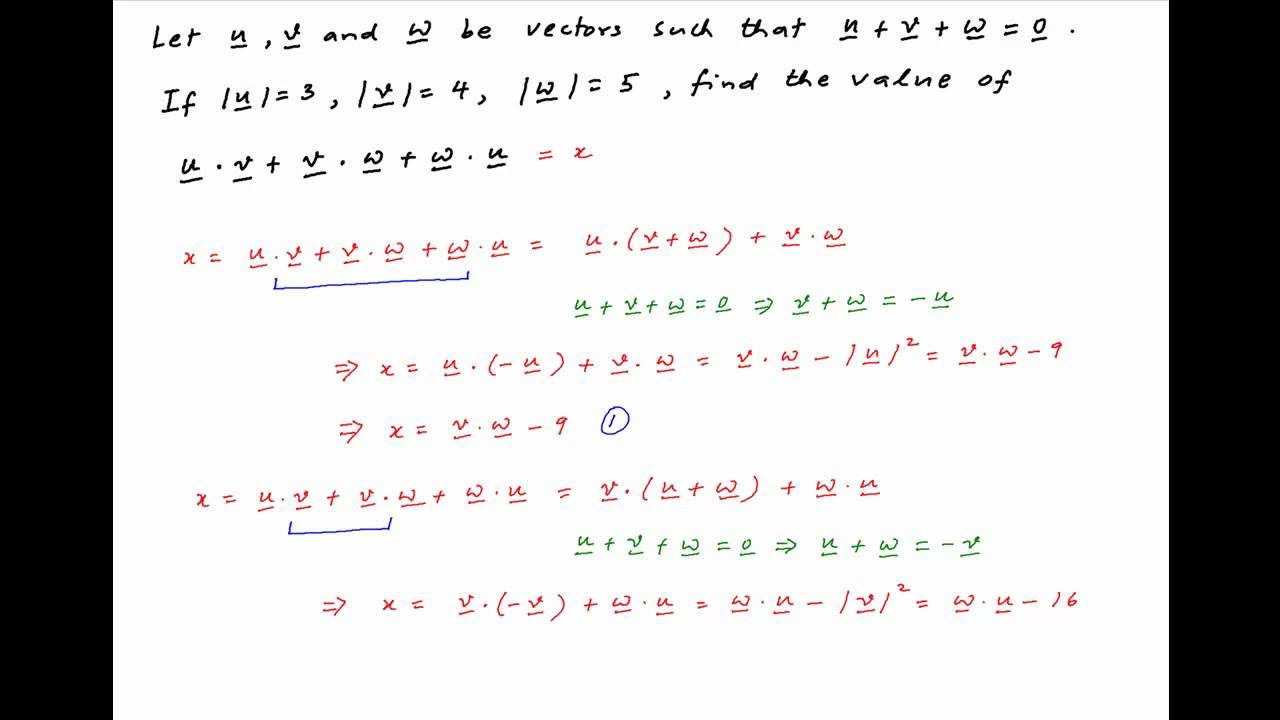 Let u, v and w be vectors such that u + v + w = 0.
If |u| = 3, |v| = 4, |w| = 5, find the value of
u · v + v · w + w · u = x
x = u · v + v · w + w · u = u · (v + w) + v · w
u + v + w = 0 ⇒ v + w = - u
⇒ x = u · (- u) + v · w = v · w - |u|² = v · w - 9
⇒ x = v · w - 9 ①
x = u · v + v · w + w · u = v · (u + w) + w · u
u + v + w = 0 ⇒ u + w = - v
⇒ x = v · (- v) + w · u = w · u - |v|² = w · u - 16